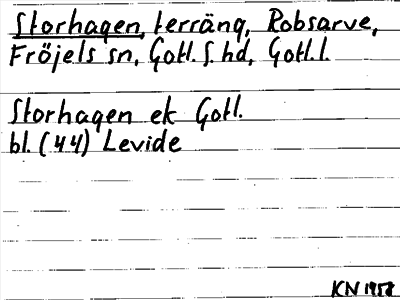 Storhagen, terräng, Robsarve,
Fröjels sn, Gotl. S. hd, Gotl. l.
Storhagen ek Gotl.
bl. (44) Levide
KN 1958